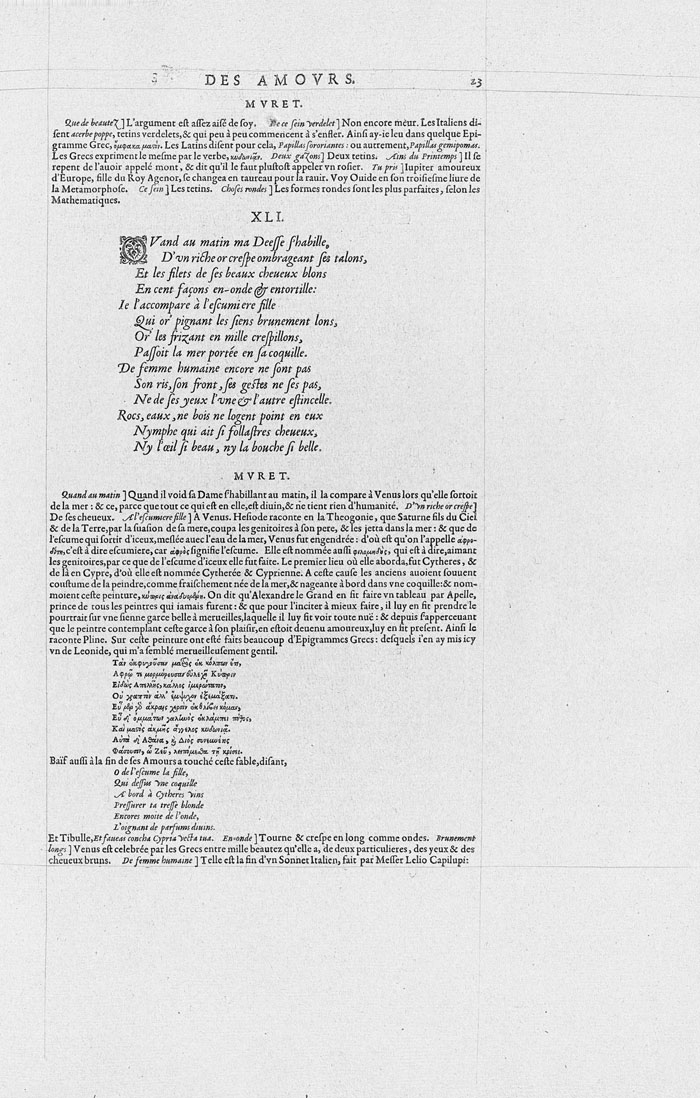 DES AMOVRS. 23
MVRET.
Que de beautez] L'argument est assez aisé de soy. De ce sein verdelet] Non encore meur. Les Italiens di-
sent acerbe poppe, tetins verdelets, & qui peu à peu commencent à s'enfler. Ainsi ay-ie leu dans quelque Epi-
gramme Grec, Les Latins disent pour cela, Papillas sororiantes: ou autrement, Papillas gemipomas.
Les Grecs expriment le mesme par le verbe, Deux gazons] Deux tetins. Ains du Printemps] Il se
repent de l'auoir appelé mont, & dit qu'il le faut plustost appeler vn rosier. Tu pris] Iupiter amoureux
d'Europe, fille du Roy Agenor, se changea en taureau pour la rauir. Voy Ouide en son troisiesme liure de
la Metamorphose. Ce sein] Les tetins. Choses rondes] Les formes rondes sont les plus parfaites, selon les
Mathematiques.
XLI.
QVand au matin ma Deesse s'habille,
D'vn riche or crespe ombrageant ses talons,
Et les filets de ses beaux cheueux blons
En cent façons en-onde & entortille:
Ie l'accompare à l'escumiere fille
Qui or' pignant les siens brunement lons,
Or' les frizant en mille crespillons,
Passoit la mer portée en sa coquille.
De femme humaine encore ne sont pas
Son ris, son front, ses gestes ne ses pas,
Ne de ses yeux l'vne & l'autre estincelle.
Rocs, eaux, ne bois ne logent point en eux
Nymphe qui ait si follastres cheueux,
Ny l'œil si beau, ny la bouche si belle.
MVRET.
Quand au matin] Quand il void sa Dame s'habillant au matin, il la compare à Venus lors qu'elle sortoit
de la mer: & ce, parce que tout ce qui est en elle, est diuin, & ne tient rien d'humanité. D'vn riche or crespe]
De ses cheueux. A l'escumiere fille] A Venus. Hesiode raconte en la Theogonie, que Saturne fils du Ciel
& de la Terre, par la suasion de sa mere, coupa les genitoires à son pere, & les jetta dans la mer: & que de
l'escume qui sortir d'iceux, meslée auec l'eau de la mer, Venus fut engendrée: d'où est qu'on l'appelle ἀφρο-
δίτη, c'est à dire escumiere, car ἀφρὸς signifie l'escume. Elle est nommée aussi φιλομηδὴς, qui est à dire, aimant
les genitoires, par ce que de l'escume d'iceux elle fut faite. Le premier lieu où elle aborda, fut Cytheres, &
de là en Cypre, d'où elle est nommée Cytherée & Cyprienne. A ceste cause les anciens auoient souuent
coustume de la peindre, comme fraischement née de la mer, & nageante à bord dans vne coquille: & nom-
moient ceste peinture, κύπρις ἀναδυομένη. On dit qu'Alexandre le Grand en fit faire vn tableau par Apelle,
prince de tous les peintres qui iamais furent: & que pour l'inciter à mieux faire, il luy en fit prendre le
pourtrait sur vne sienne garce belle à merueilles, laquelle il luy fit voir toute nuë: & depuis s'apperceuant
que le peintre contemplant ceste garce à son plaisir, en estoit deuenu amoureux, luy en fit present. Ainsi le
raconte Pline. Sur ceste peinture ont esté faits beaucoup d'Epigrammes Grecs: desquels i'en ay mis icy
vn de Leonide, qui m'a semblé merueilleusement gentil.
Τὰν ἐκφυγοῦσαν μαῖδος ἐκ κόλπων ἔτι,
Ἀφρῷ τε μορμύρουσαν Κύπριν
Εἰδὼς Ἀπελλῆς, κάλλος ἱμερώτατον,
Οὐ γραπτὸν ἀλλ' ἔμψυχον ἐξεμάξατο.
Εὖ μὲν γὸ ἄκραις χερσὶν ἐκθλίβει κόμαν,
Εὖ δ' ὀμμάτων γαλωὸς ἐκλάμπει πόθος,
Καὶ μαζὸς ἀκμῆς ἄγγελος κυδωνιᾷ.
Αὐτὰ δ' Ἀθάνα, ϗ Διὸς συνευνέτις
Φάσουσιν, ὦ Ζεῦ, λειπόμεσθα τῇ κρίσει.
Baïf aussi à la fin de ses Amours a touché ceste fable, disant,
O de l'escume la fille,
Qui dessus vne coquille
A bord à Cytheres vins
Pressurer ta tresse blonde
Encores moite de l'onde,
L'oignant de parfums diuins.
Et Tibulle, Et faueas concha Cypria vecta tua. En-onde] Tourne & crespe en long comme ondes. Brunement
longs] Venus est celebrée par les Grecs entre mille beautez qu'elle a, de deux particulieres, des yeux & des
cheueux bruns. De femme humaine] Telle est la fin d'vn Sonnet Italien, fait par Messer Lelio Capilupi: